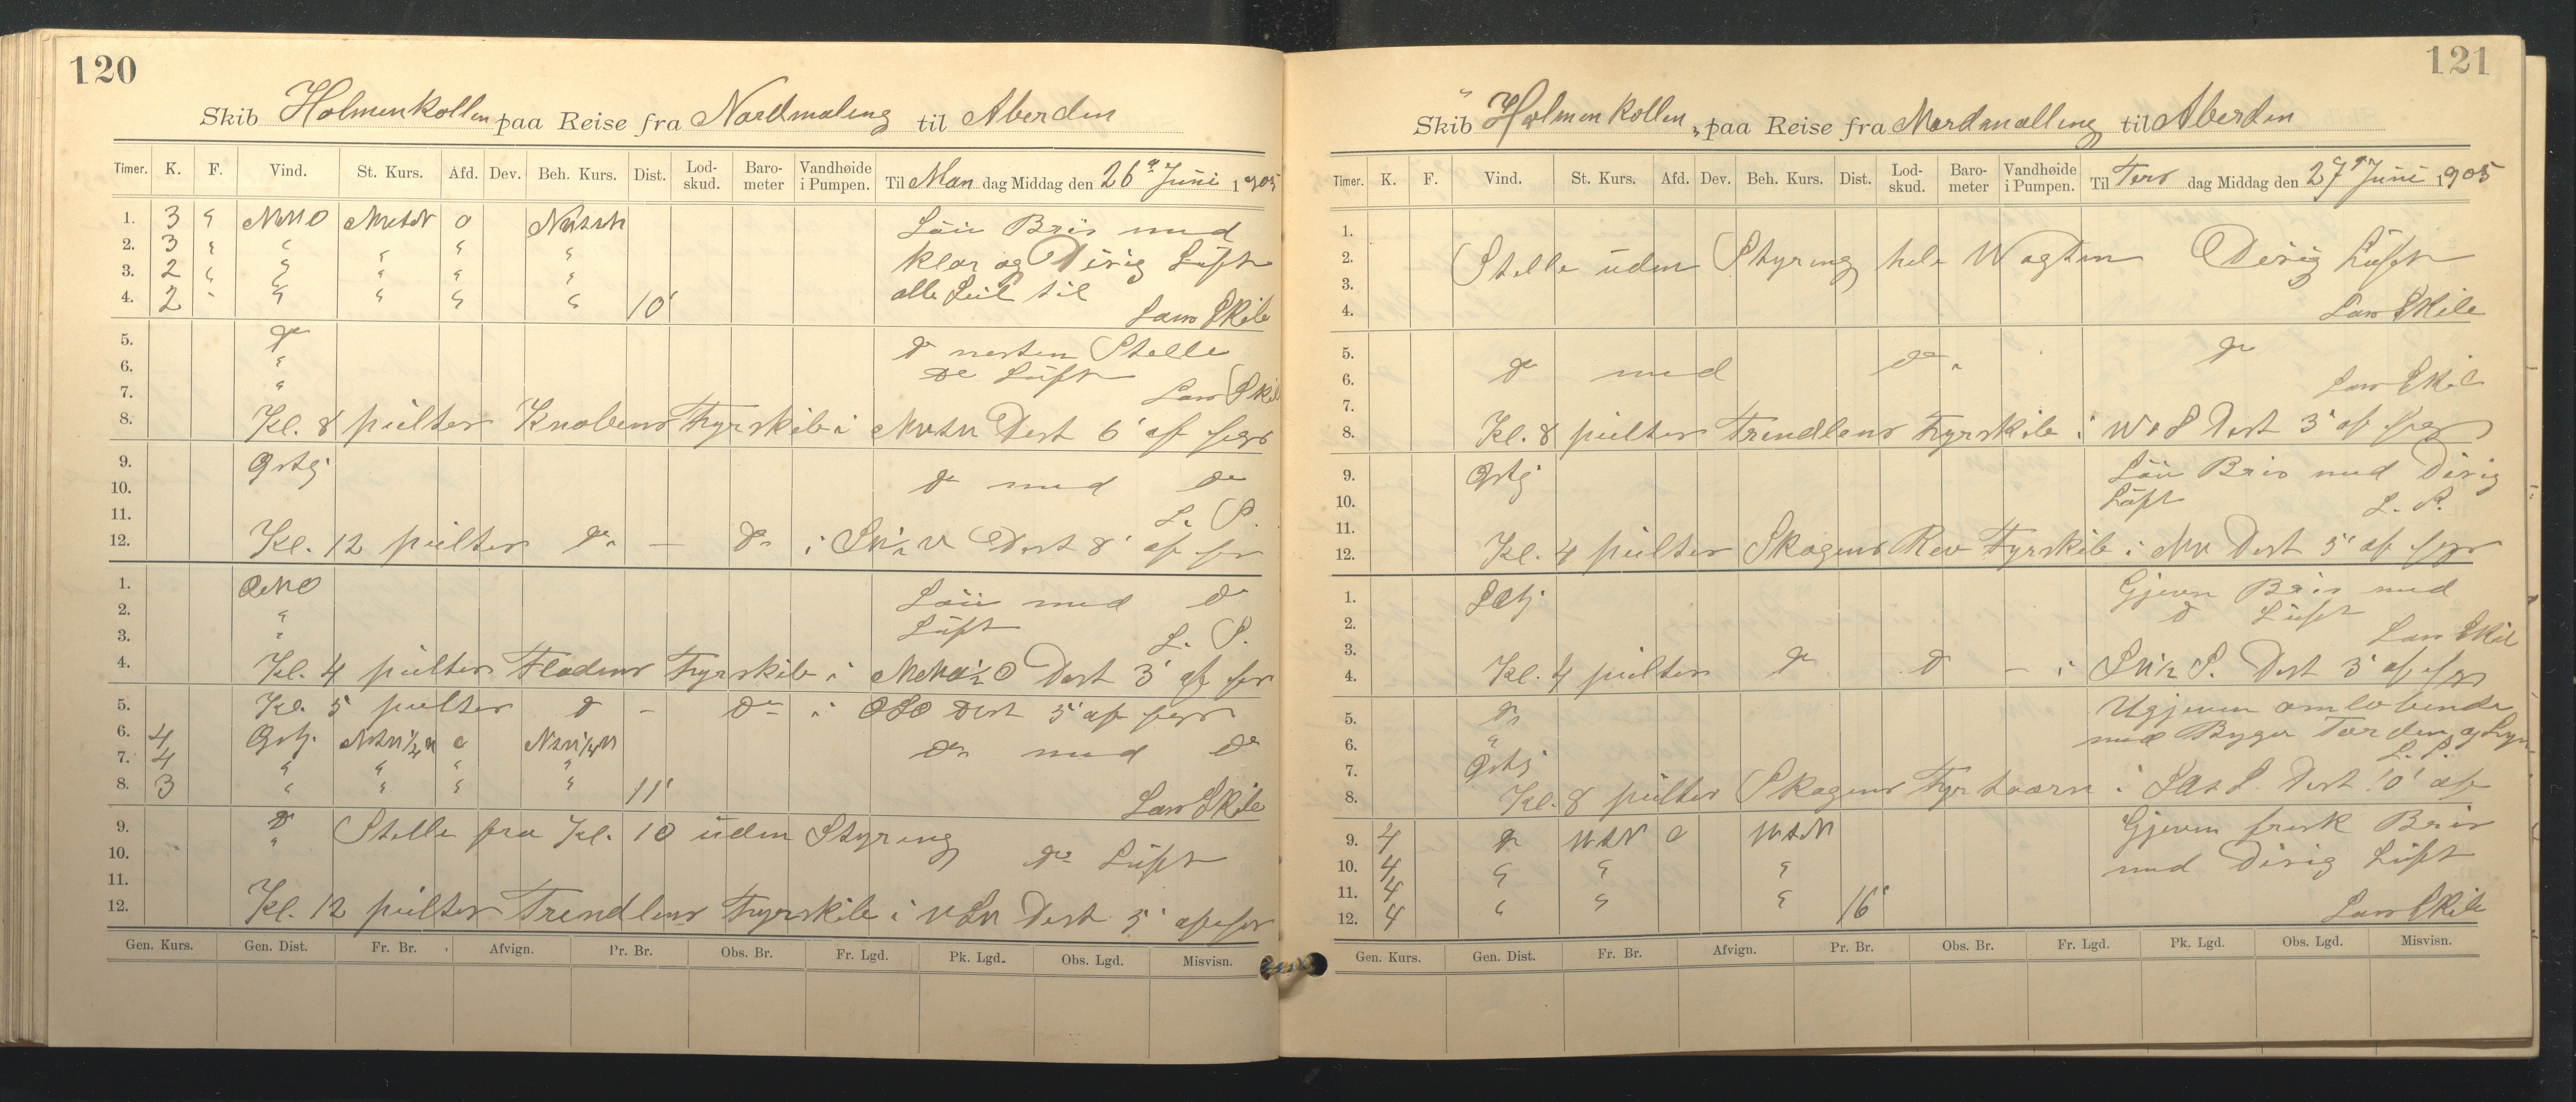 120
Skib Holmenkollen paa Reise fra Nordmaling til Aberden
Timer. K. F. Vind. St. Kurs. Afd. Dev. Beh. Kurs. Dist. Lod-skud. Baro-meter Vandhøide i Pumpen. Til Man dag Middag den 26 Juni 1905
1. 3 " NNO o Löu Bris med
2. 3 " " " " " klar og Disig Luft
3. 2 " " " " " alle Seil til
4. 2 " " " " " 10' Lars Skib
5. do do nesten Stelle
6. " do Luft
7. " Lars Skib
8. Kl. 8 peilter Knobens Fyrskib i Dest 6' af fyr
9. Østlj
10. do med do
11. L. S.
12. Kl. 12 peilter do — do i Dest 8' af fyr
1. ONO Löu med do
2. " Luft
3. " L. S.
4. Kl. 4 peilter Fladens Fyrskib i Dest 3' af fyr
5. Kl. 5 peilter do - do i OSO Dest 5' af fyr
6. 4 Østlj. o do med do
7. 4 " " " "
8. 3 " " " " 11' Lars Skib
9. do Stelle fra Kl. 10 uden Styring
10. " do Luft
11.
12. Kl. 12 peilter Trendlens Fyrskib i Dest 5' af fyr
Gen. Kurs. Gen. Dist. Fr. Br. Afvign. Pr. Br. Obs. Br. Fr. Lgd. Pk. Lgd. Obs. Lgd. Misvisn.
121
Skib "Holmenkollen" paa Reise fra Nordmalling til Aberden
Timer. K. F. Vind. St. Kurs. Afd. Dev. Beh. Kurs. Dist. Lod-skud. Baro-meter Vandhøide i Pumpen. Til Ters dag Middag den 27 Juni 1905
1.
2. Stelle uden Styring hele Wagten Disig Luft
3.
4. Lars Skib
5. do
6. do med do "
7. Lars Skib
8. Kl. 8 peilter Trendlens Fyrskib i Dest 3' af fyr
9. Østlj Löu Bris med Disig
10. Luft L. S.
11.
12. Kl. 4 peilter Skagens Rev Fyrskib i Dest 5' af fyr
1. Gjevn Bris med
2. do Luft
3. Lars Skib
4. Kl. 4 peilter do do - i Dest 3' af fyr
5. do Ugjeven omlobende
6. " med Byger Torden og
7. Østlj L. S.
8. Kl. 8 peilter Skagens Fyrtaarn i Dest 10' af
9. 4 do o Gjeven frisk Bris
10. 4 " " " med Disig Luft
11. 4
12. 4 " " " 16' Lars Skib
Gen. Kurs. Gen. Dist. Fr. Br. Afvign. Pr. Br. Obs. Br. Fr. Lgd. Pk. Lgd. Obs. Lgd. Misvisn.